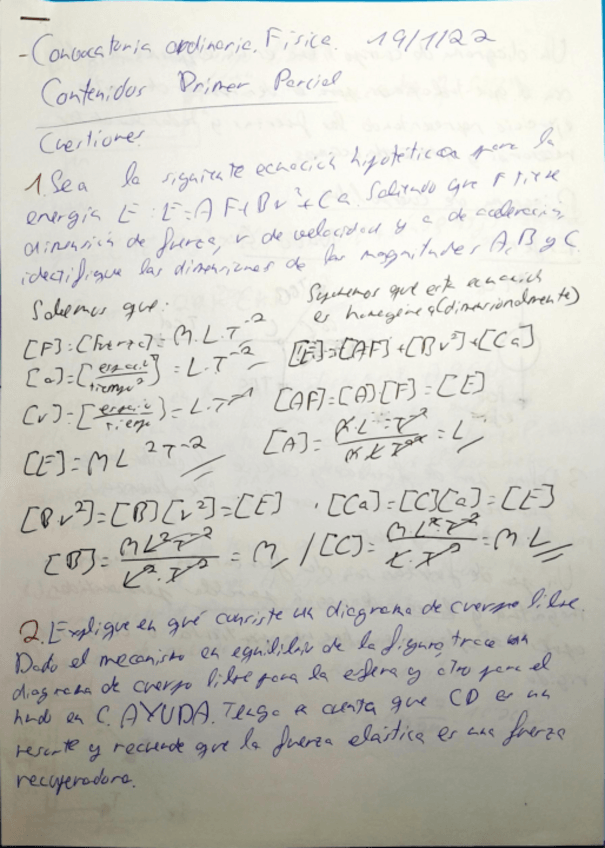 - Convocatoria ordinaria. Física. 19/1/22
Contenidos Primer Parcial
Cuestiones
1. Sea la siguiente ecuación hipotética para la
energía E: E=A F+Bv²+Ca Sabiendo que F tiene
dimensión de fuerza, v de velocidad y a de aceleración,
identifique las dimensiones de las magnitudes A, B y C
Sabemos que:
Suponemos que esta ecuación
es homogénea (dimensionalmente)
[F]=[Fuerza]=M·L·T⁻²
[a]=[espacio/tiempo²]=L·T⁻²
[E]=[AF]+[Bv²]+[Ca]
[v]=[espacio/tiempo]=L·T⁻¹
[AF]=[A][F]=[E]
[E]=ML²T⁻²
[A]=M·L²·T⁻²/M·L·T⁻²=L
[Bv²]=[B][v²]=[E] · [Ca]=[C][a]=[E]
[B]=ML²T⁻²/L²·T⁻²=M / [C]=ML²·T⁻²/L·T⁻²=M·L
2. Explique en qué consiste un diagrama de cuerpo libre.
Dado el mecanismo en equilibrio de la figura, trace un
diagrama de cuerpo libre para la esfera y otro para el
nudo en C. AYUDA. Tenga en cuenta que CD es un
resorte y recuerde que la fuerza elástica es una fuerza
recuperadora.